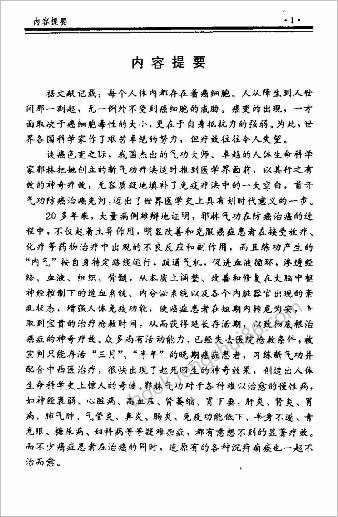 内容提要 · 1 ·
内 容 提 要
据文献记载：每个人体内都存在着癌细胞。人从降生到人世
间那一刻起，无一例外不受到癌细胞的威胁。癌变的出现，一方
面取决于癌细胞毒性的大小，更在于自身抵抗力的强弱。为此，世
界各国科学家作了艰苦卓绝的努力，但疗效往往令人失望。
谈癌色变之际，我国杰出的气功大师、卓越的人体生命科学
家郭林把她创立的新气功疗法适时推到医学界面前，以其行之有
效的神奇疗效，无容质疑地填补了免疫疗法中的一大空白，首开
气功防癌治癌先河，迈出了世界医学史上具有划时代意义的一步。
20多年来，大量病例雄辩地证明，郭林气功在防癌治癌的过
程中，不仅起着主导作用，明显改善和克服癌症患者在接受放疗、
化疗等药物治疗中出现的不良反应和副作用，而且练功产生的
“内气”按自身特定路线运行，疏通气机，促进血液循环，渗透经
络、血液、组织、骨髓，从本质上调整、改善和修复在大脑中枢
神经控制下的造血系统、内分泌系统以及各个内脏器官出现的紊
乱状态，增强人体免疫功能，使癌症患者在短期内转危为安，争
取到宝贵的治疗抢救时间，从而获得延长存活期，以致彻底根治
癌症的神奇疗效。众多尚有活动能力、已经失去医院抢救条件、被
宣判只能存活“三月”、“半年”的晚期癌症患者，习练新气功并
配合中西医治疗，很快出现了起死回生的神奇效果，创造出人体
生命科学史上惊人的奇迹。郭林气功对于各种难以治愈的慢性病，
如神经衰弱、心脏病、高血压、肾萎缩、胃下垂、肝炎、肾炎、胃
病、肺气肿、气管炎、鼻炎、肠炎、免疫功能低下、半身不遂、青
光眼、糖尿病、妇科病等等疑难杂症，都有意想不到的显著疗效。
而不少癌症患者在治癌的同时，连原有的各种沉疴痼疾也一起不
治而愈。